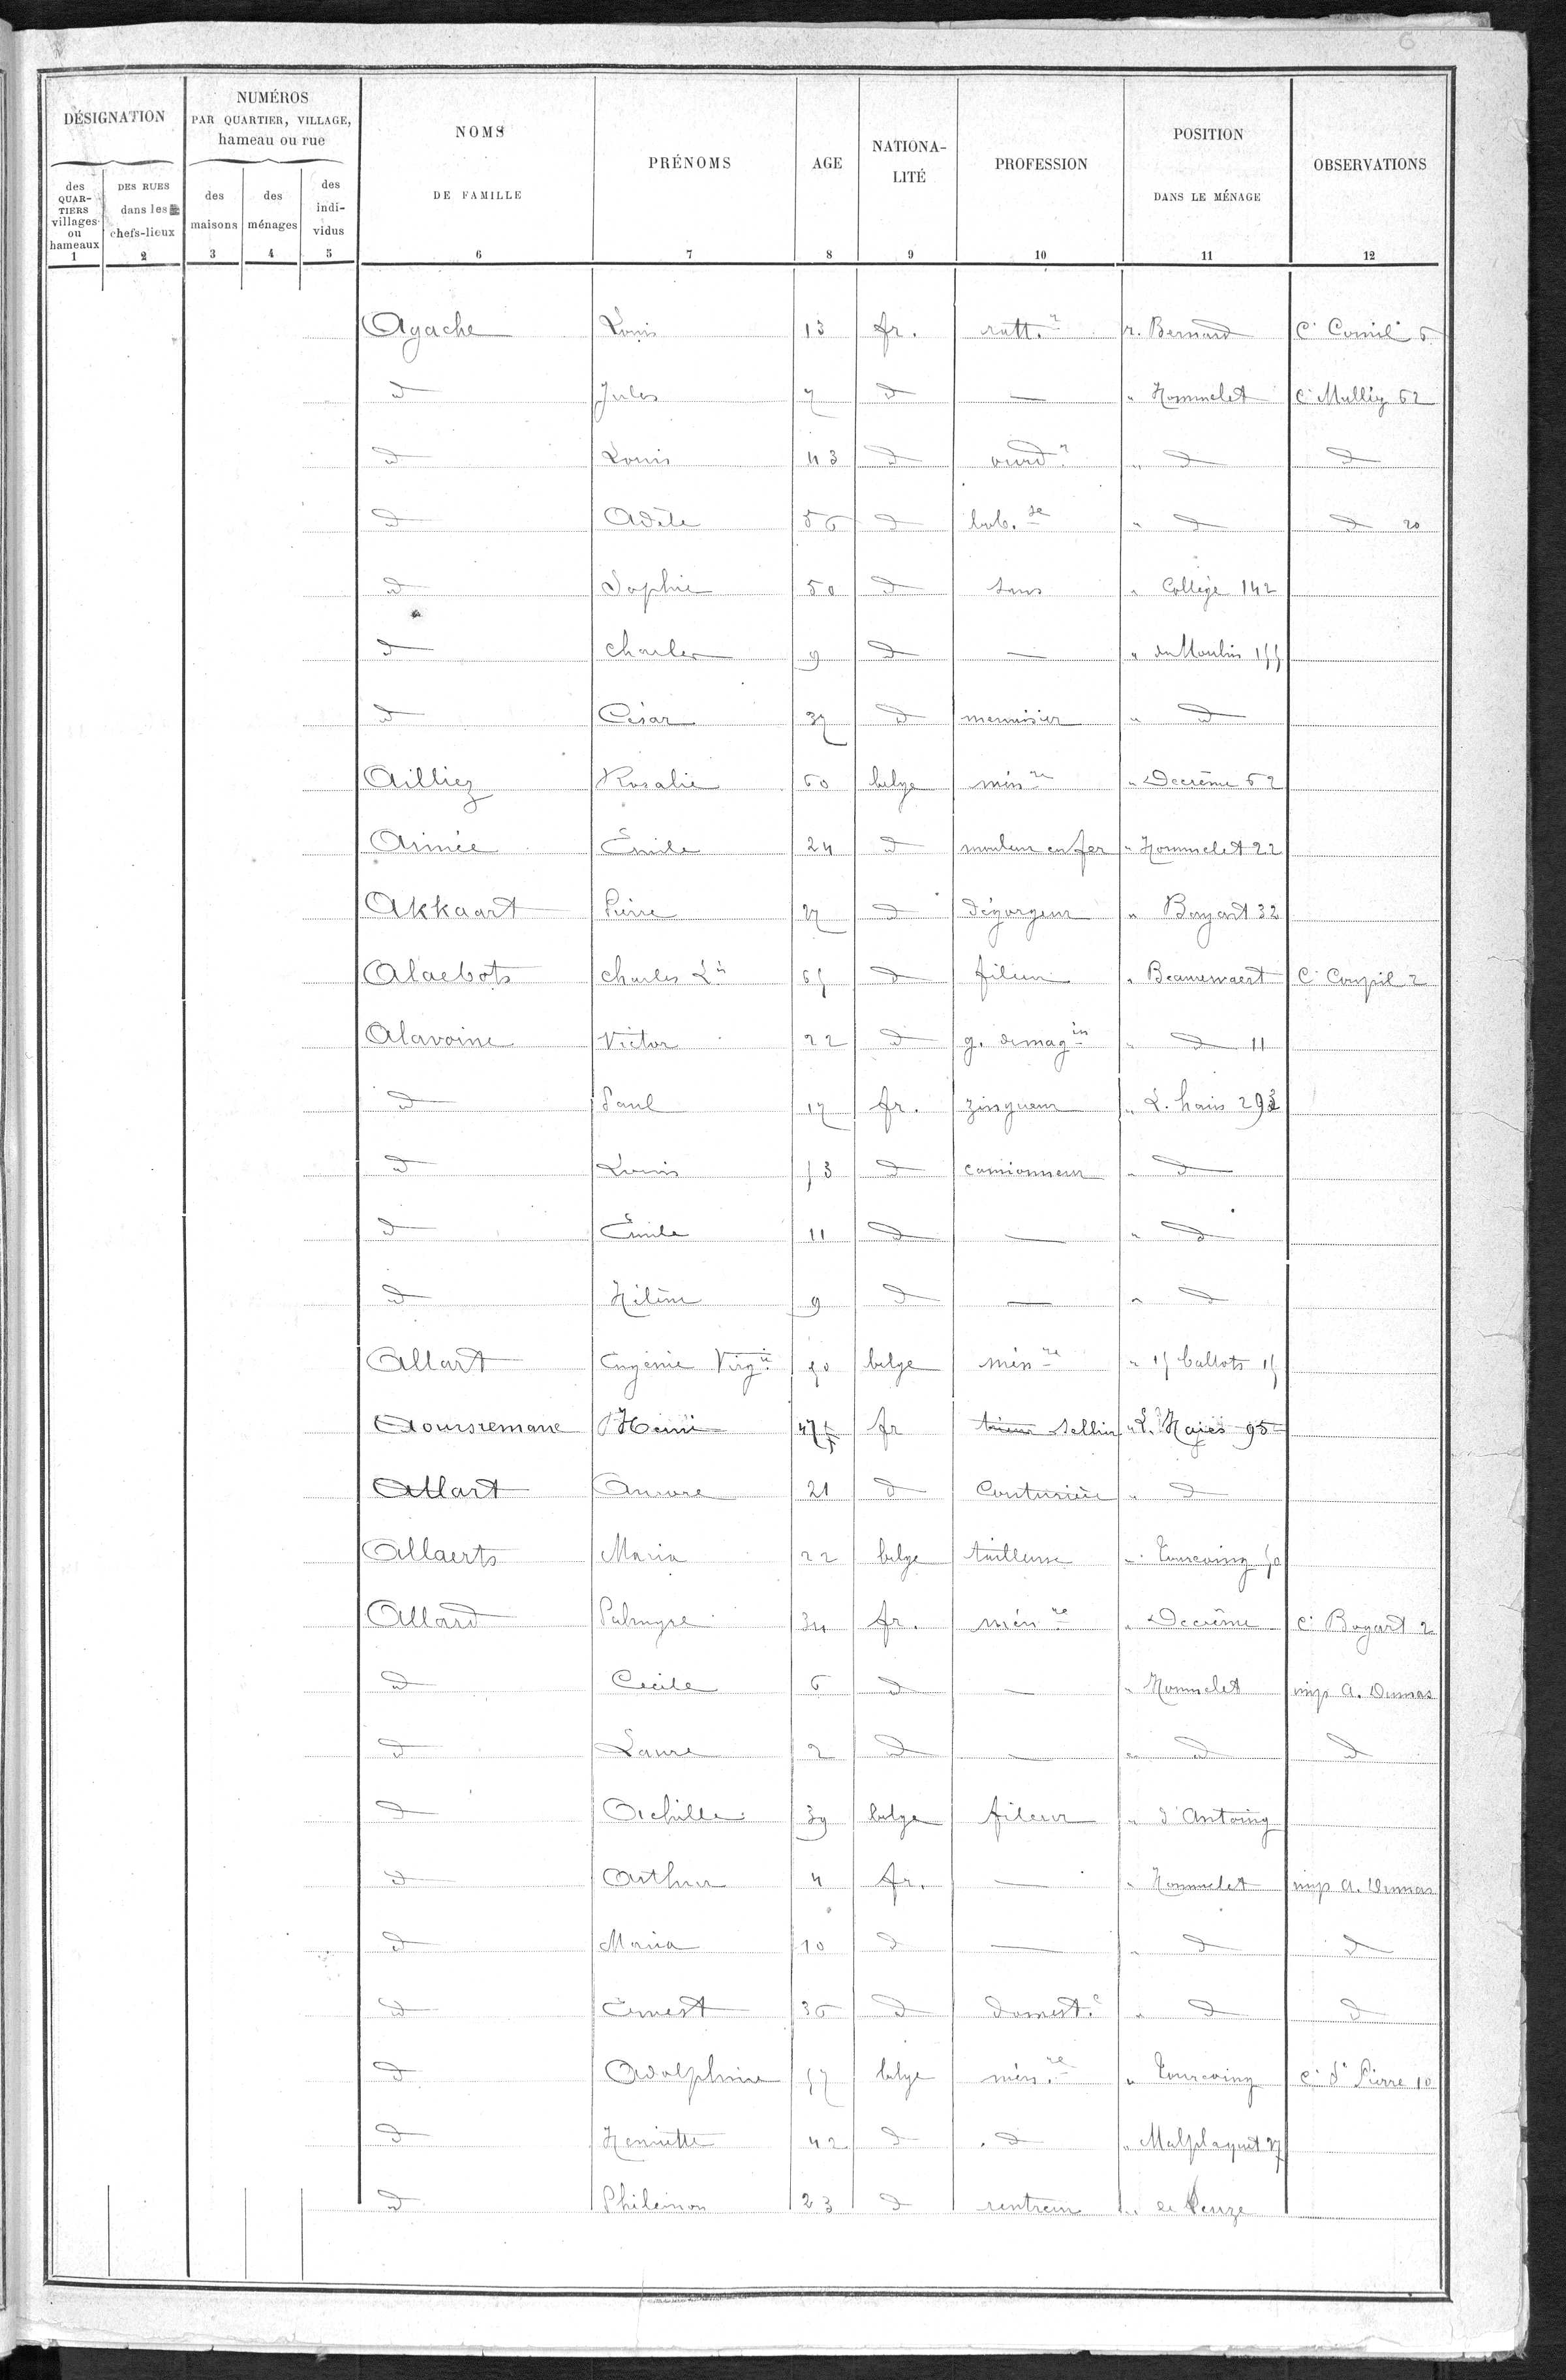 6
DÉSIGNATION
NUMÉROS
PAR QUARTIER, VILLAGE,
hameau ou rue
NOMS
DE FAMILLE
PRÉNOMS
AGE
NATIONA-
LITÉ
PROFESSION
POSITION
DANS LE MÉNAGE
OBSERVATIONS
des
QUAR-
TIERS
villages
ou
hameaux
DES RUES
dans les
chefs-lieux
des
maisons
des
ménages
des
indi-
vidus
1 2 3 4 5 6 7 8 9 10 11 12
Agache Louis 13 fr. ratt.r r. Bernard Cr 6
d Jules 7 d — " Hommelet Cr Mulliez 62
d Louis 43 d ourd.r " d d
d Adèle 56 d bob.se " d d 20
d Sophie 50 d sans " Collège 142
d Charles 9 d — " du Moulin 155
d César 37 d menuisier " d
Ailliez Rosalie 60 belge mén.re " Decrême 62
Aimée Émile 24 d mouleur en fer " Hommelet 22
Akkaart Pierre 27 d dégorgeur " Bayart 32
Alaebots Charles Ls 65 d fileur " Beaurewaert Cr Coupil 2
Alavoine Victor 22 d g. de magin " d 11
d Paul 17 fr. zingueur " L. haies 293
d Louis 53 d camionneur " d
d Émile 11 d — " d
d Hélène 9 d — " d
Allart Eugénie Virgie 50 belge mén.re " 15 ballots 15
Aoursremane Henri 47 fr sellier " L. Haies 95
Allart Aurore 21 d Couturière " d
Allaerts Maria 22 belge tailleuse " Tourcoing 50
Allard Palmyre 34 fr. mén.re " Decrême Cr Bayart 2
d Cécile 6 d — " Hommelet imp A. Dumas
d Laure 2 d — " d d
d Achille 39 belge fileur " d'Antoing
d Arthur 4 fr. — " Hommelet imp A. Dumas
d Maria 10 d — " d d
d Ernest 36 d domest.e " d d
d Adolphine 57 belge mén.re " Tourcoing Cr St Pierre 10
d Henriette 42 d d " Malplaquet 27
d Philémon 23 d rentreur " de Leuze